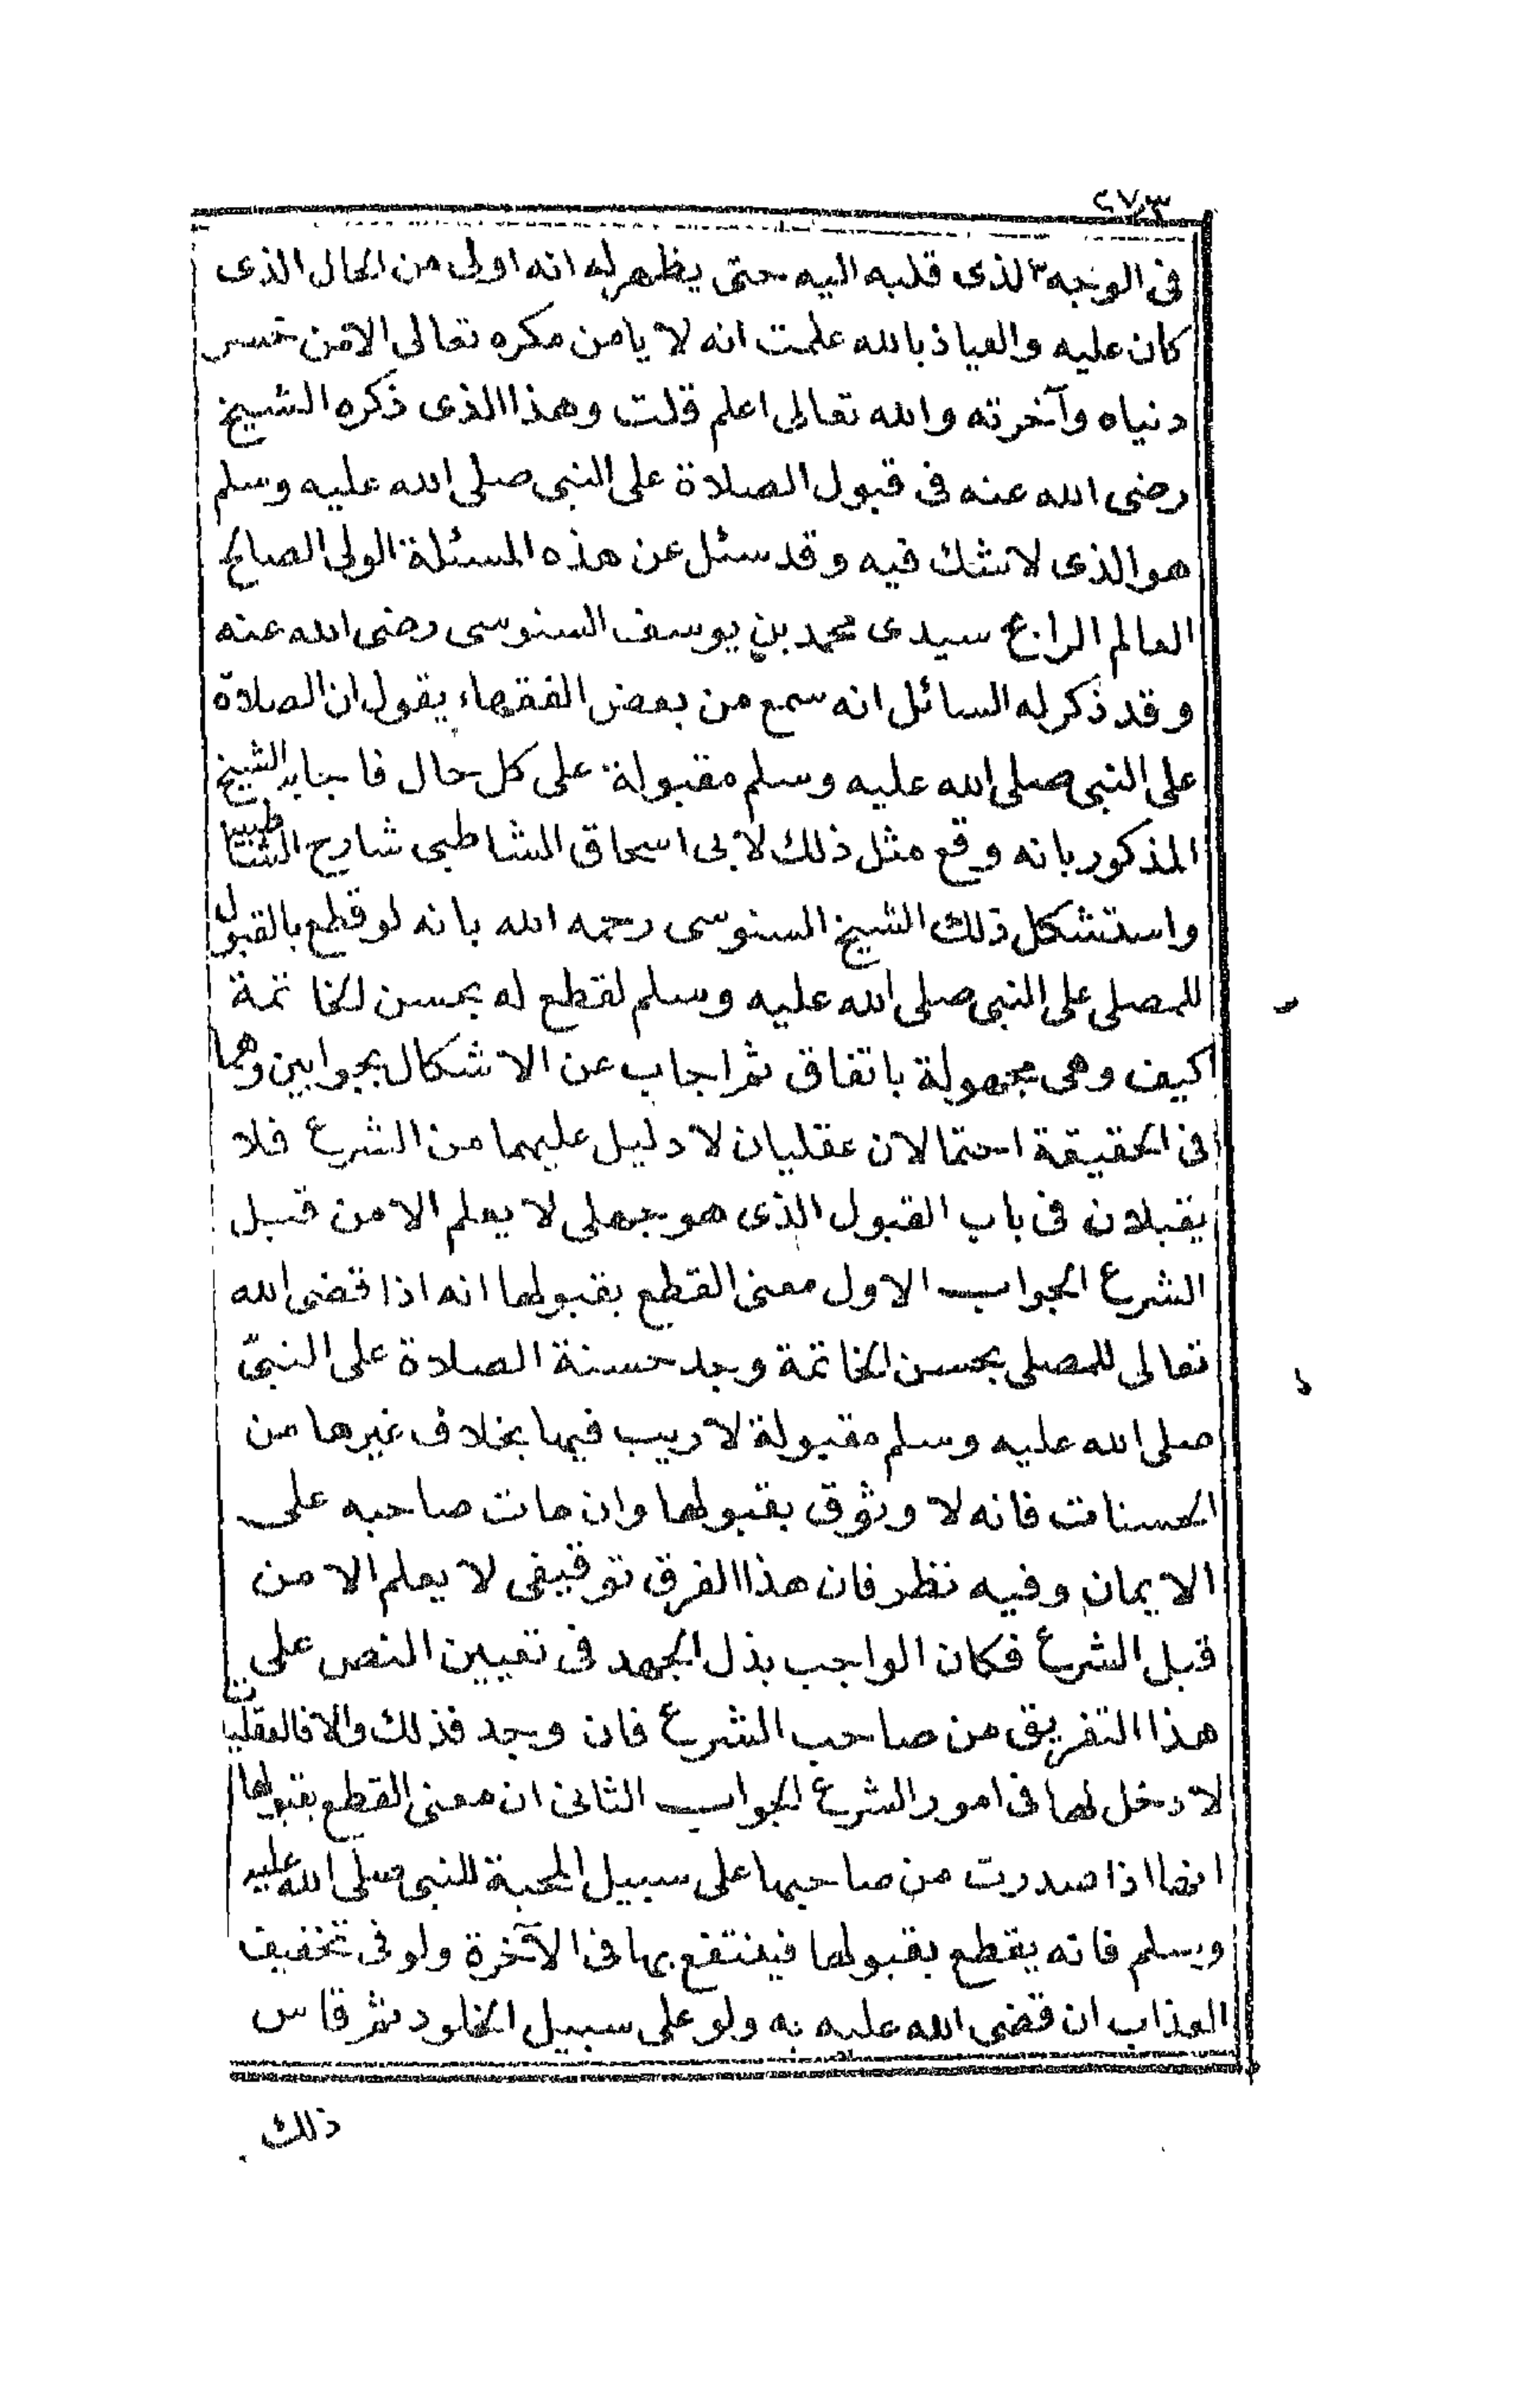 ٢٧٣
فى الوجه الذى قلبه اليه حتى يظهر له انه اولى من الحال الذى
كان عليه والعياذ بالله علمت انه لا يامن مكره تعالى الا من خسر
دنياه وآخرته والله تعالى اعلم قلت وهذا الذى ذكره الشيخ
رضى الله عنه فى قبول الصلاة على النبى صلى الله عليه وسلم
هو الذى لا شك فيه وقد سئل عن هذه المسئلة الولى الصالح
العالم الرابح سيدى محمد بن يوسف السنوسى رضى الله عنه
وقد ذكر له السائل انه سمع من بعض الفقهاء يقول ان الصلاة
على النبى صلى الله عليه وسلم مقبولة على كل حال فاجابه الشيخ
المذكور بانه وقع مثل ذلك لابى اسحاق الشاطبى شارح الشاطبية
واستشكل ذلك الشيخ السنوسى رحمه الله بانه لو قطع بالقبول
للمصلى على النبى صلى الله عليه وسلم لقطع له بحسن الخاتمة
كيف وهى مجهولة باتفاق ثم اجاب عن الاشكال بجوابين وهما
فى الحقيقة احتمالان عقليان لا دليل عليهما من الشرع فلا
يقبلان فى باب القبول الذى هو جعلى لا يعلم الا من قبل
الشرع الجواب الاول معنى القطع بقبولها انه اذا قضى الله
تعالى للمصلى بحسن الخاتمة وجد حسنة الصلاة على النبىّ
صلى الله عليه وسلم مقبولة لا ريب فيها بخلاف غيرها من
الحسنات فانه لا وثوق بقبولها وان مات صاحبه على
الايمان وفيه نظر فان هذا الفرق توقيفى لا يعلم الا من
قبل الشرع فكان الواجب بذل الجهد فى تعيين النص على
هذا التفريق من صاحب الشرع فان وجد فذلك والا فالعقليات
لا دخل لها فى امور الشرع الجواب الثانى ان معنى القطع بقبولها
انها اذا صدرت من صاحبها على سبيل المحبة للنبى صلى الله عليه
وسلم فانه يقطع بقبولها فينتفع بها فى الآخرة ولو فى تخفيف
العذاب ان قضى الله عليه به ولو على سبيل الخلود ثم قاس
ذلك